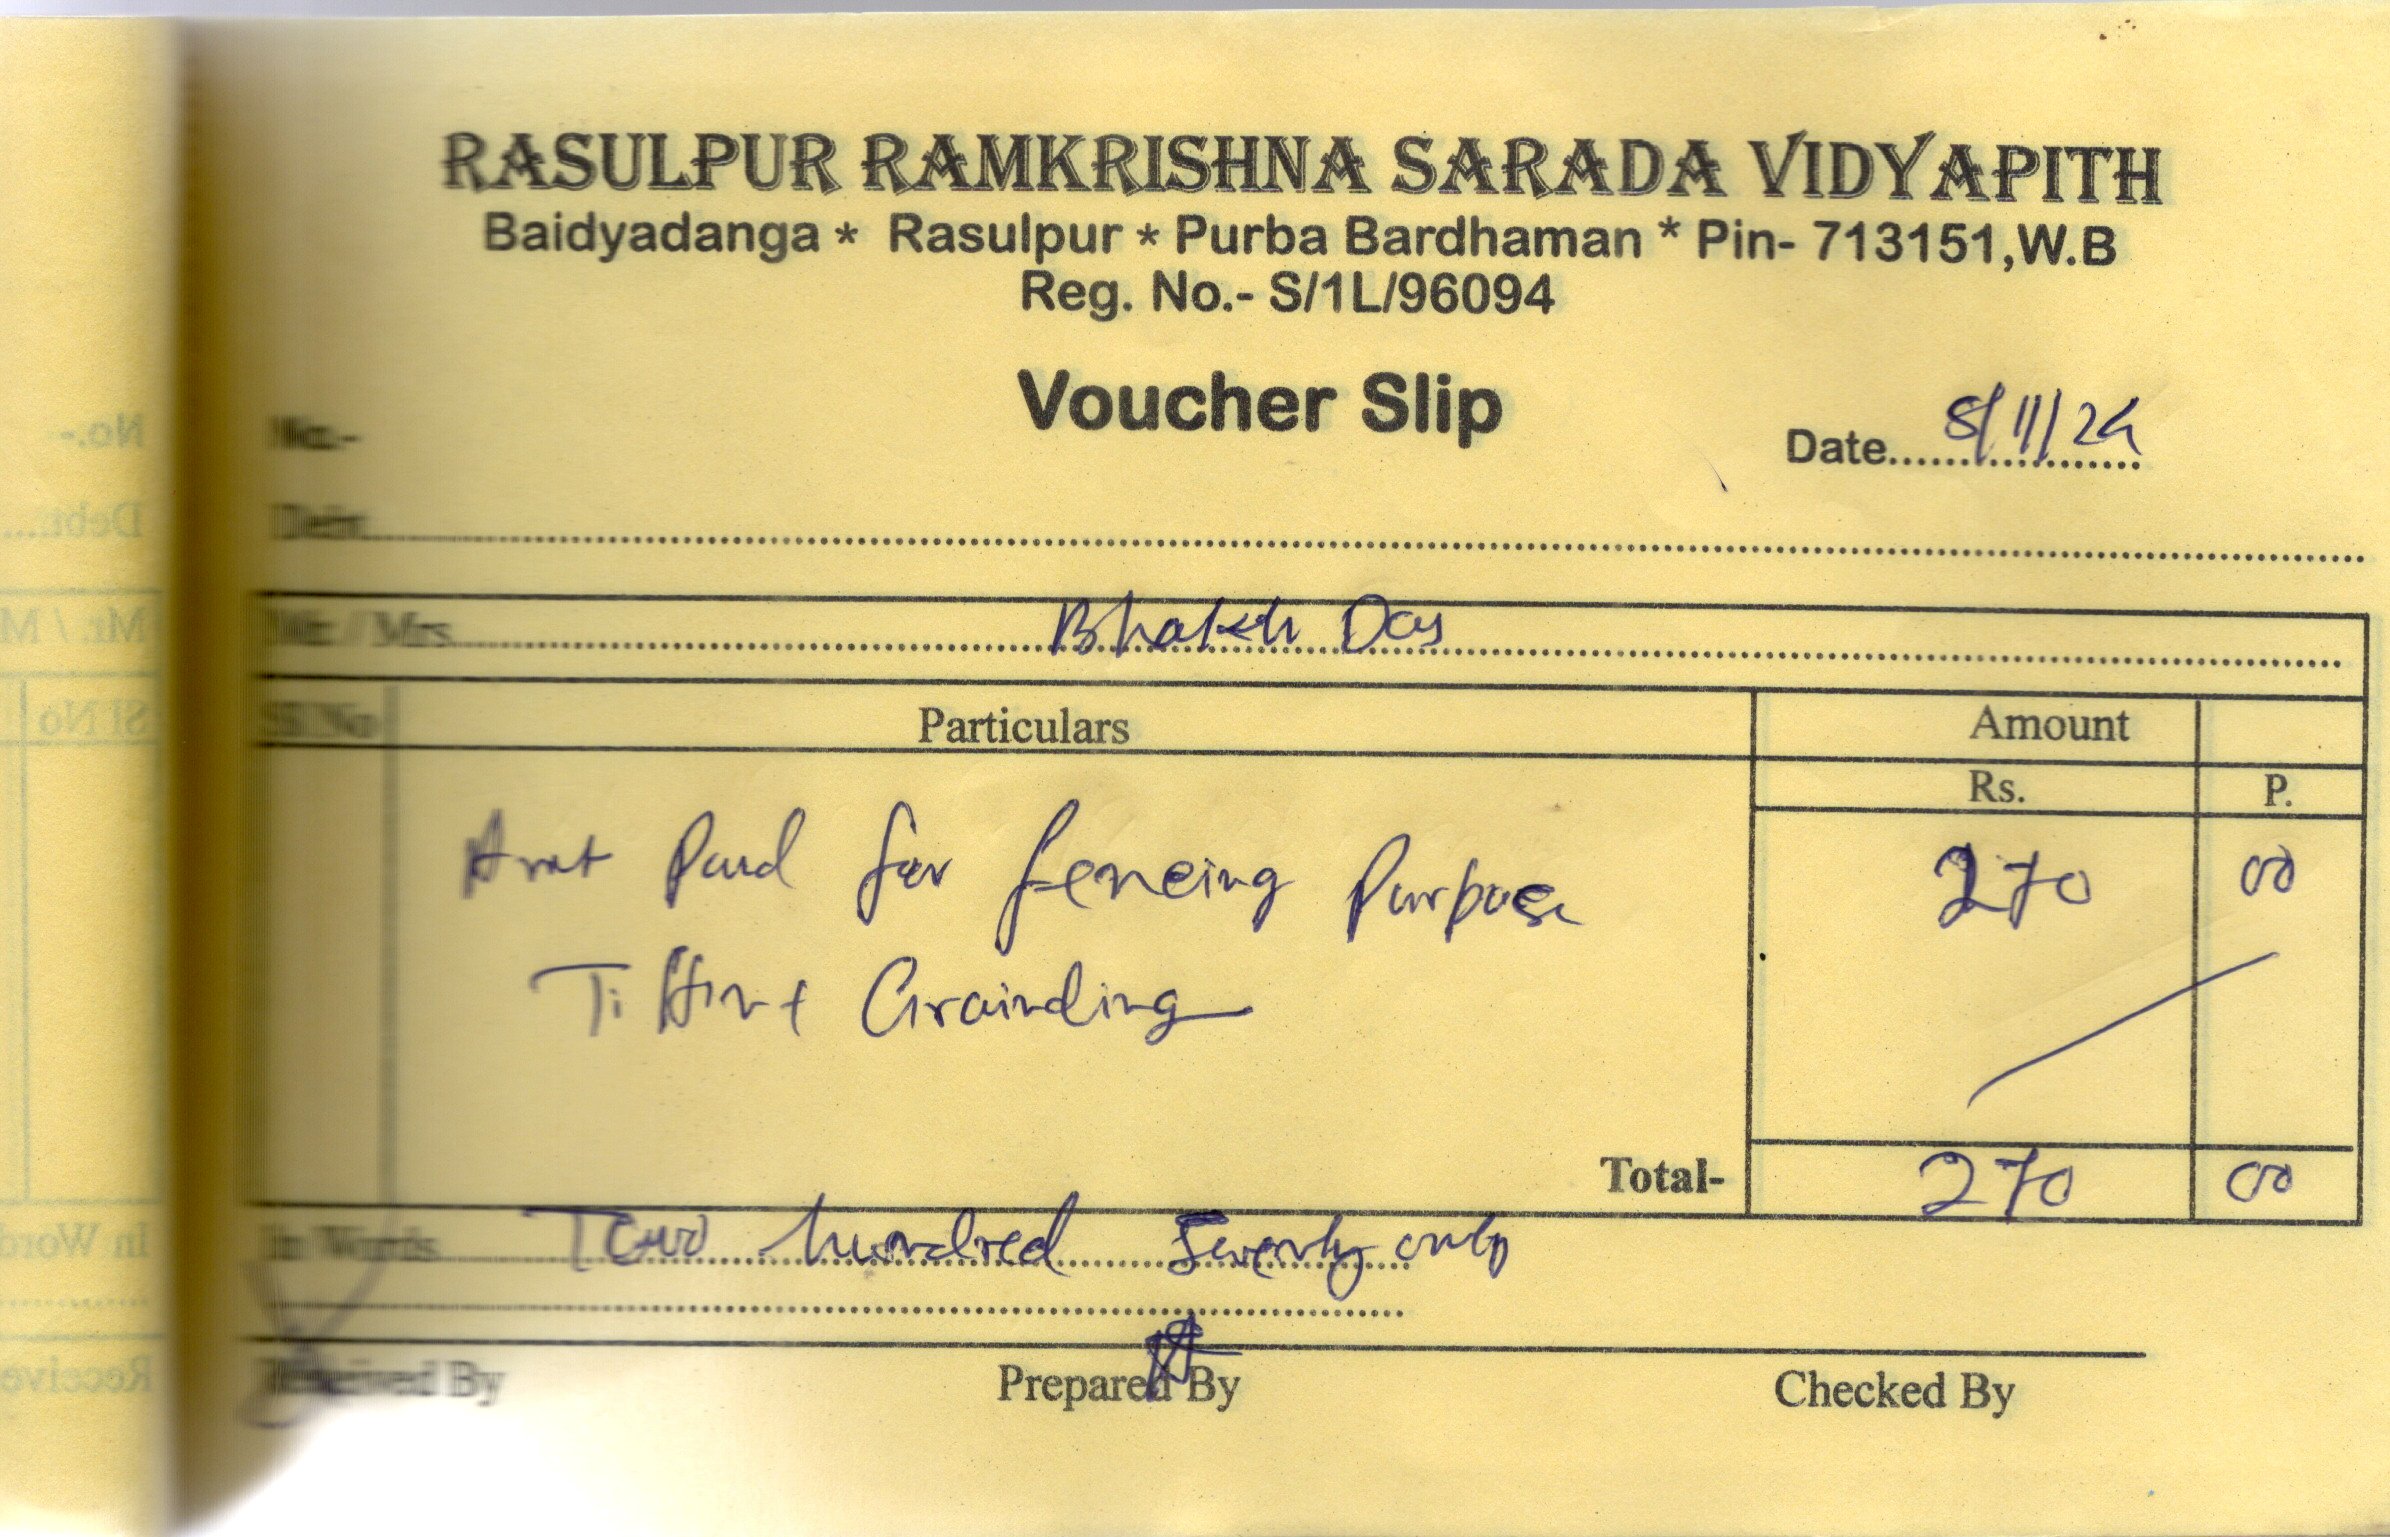 RASULPUR RAMKRISHNA SARADA VIDYAPITH
Baidyadanga * Rasulpur * Purba Bardhaman * Pin- 713151,W.B
Reg. No.- S/1L/96094
Voucher Slip
No.-
Date 8/11/24
Debt
Mr. / Mrs Bhakti Das
Sl No Particulars Amount
Rs. P.
Amt Paid for fencing Purpose 270 00
Tiffin + Grainding
Total- 270 00
In Words Two hundred Seventy only
Received By Prepared By Checked By
No.-
Debt
Mr. / M
Sl No
In Word
Receive